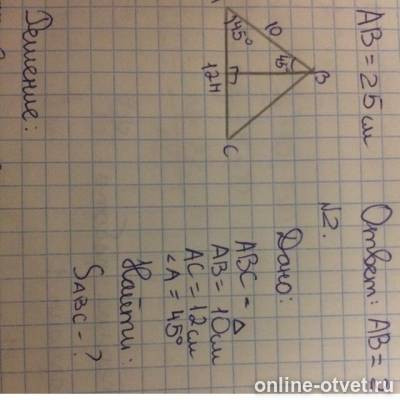 AB = 25 см
Ответ: AB =
№2.
Дано:
ABC - △
AB = 10 см
AC = 12 см
∠A = 45°
Найти:
S ABC - ?
A
45°
10
45°
B
12
H
C
Решение:
online-otvet.ru